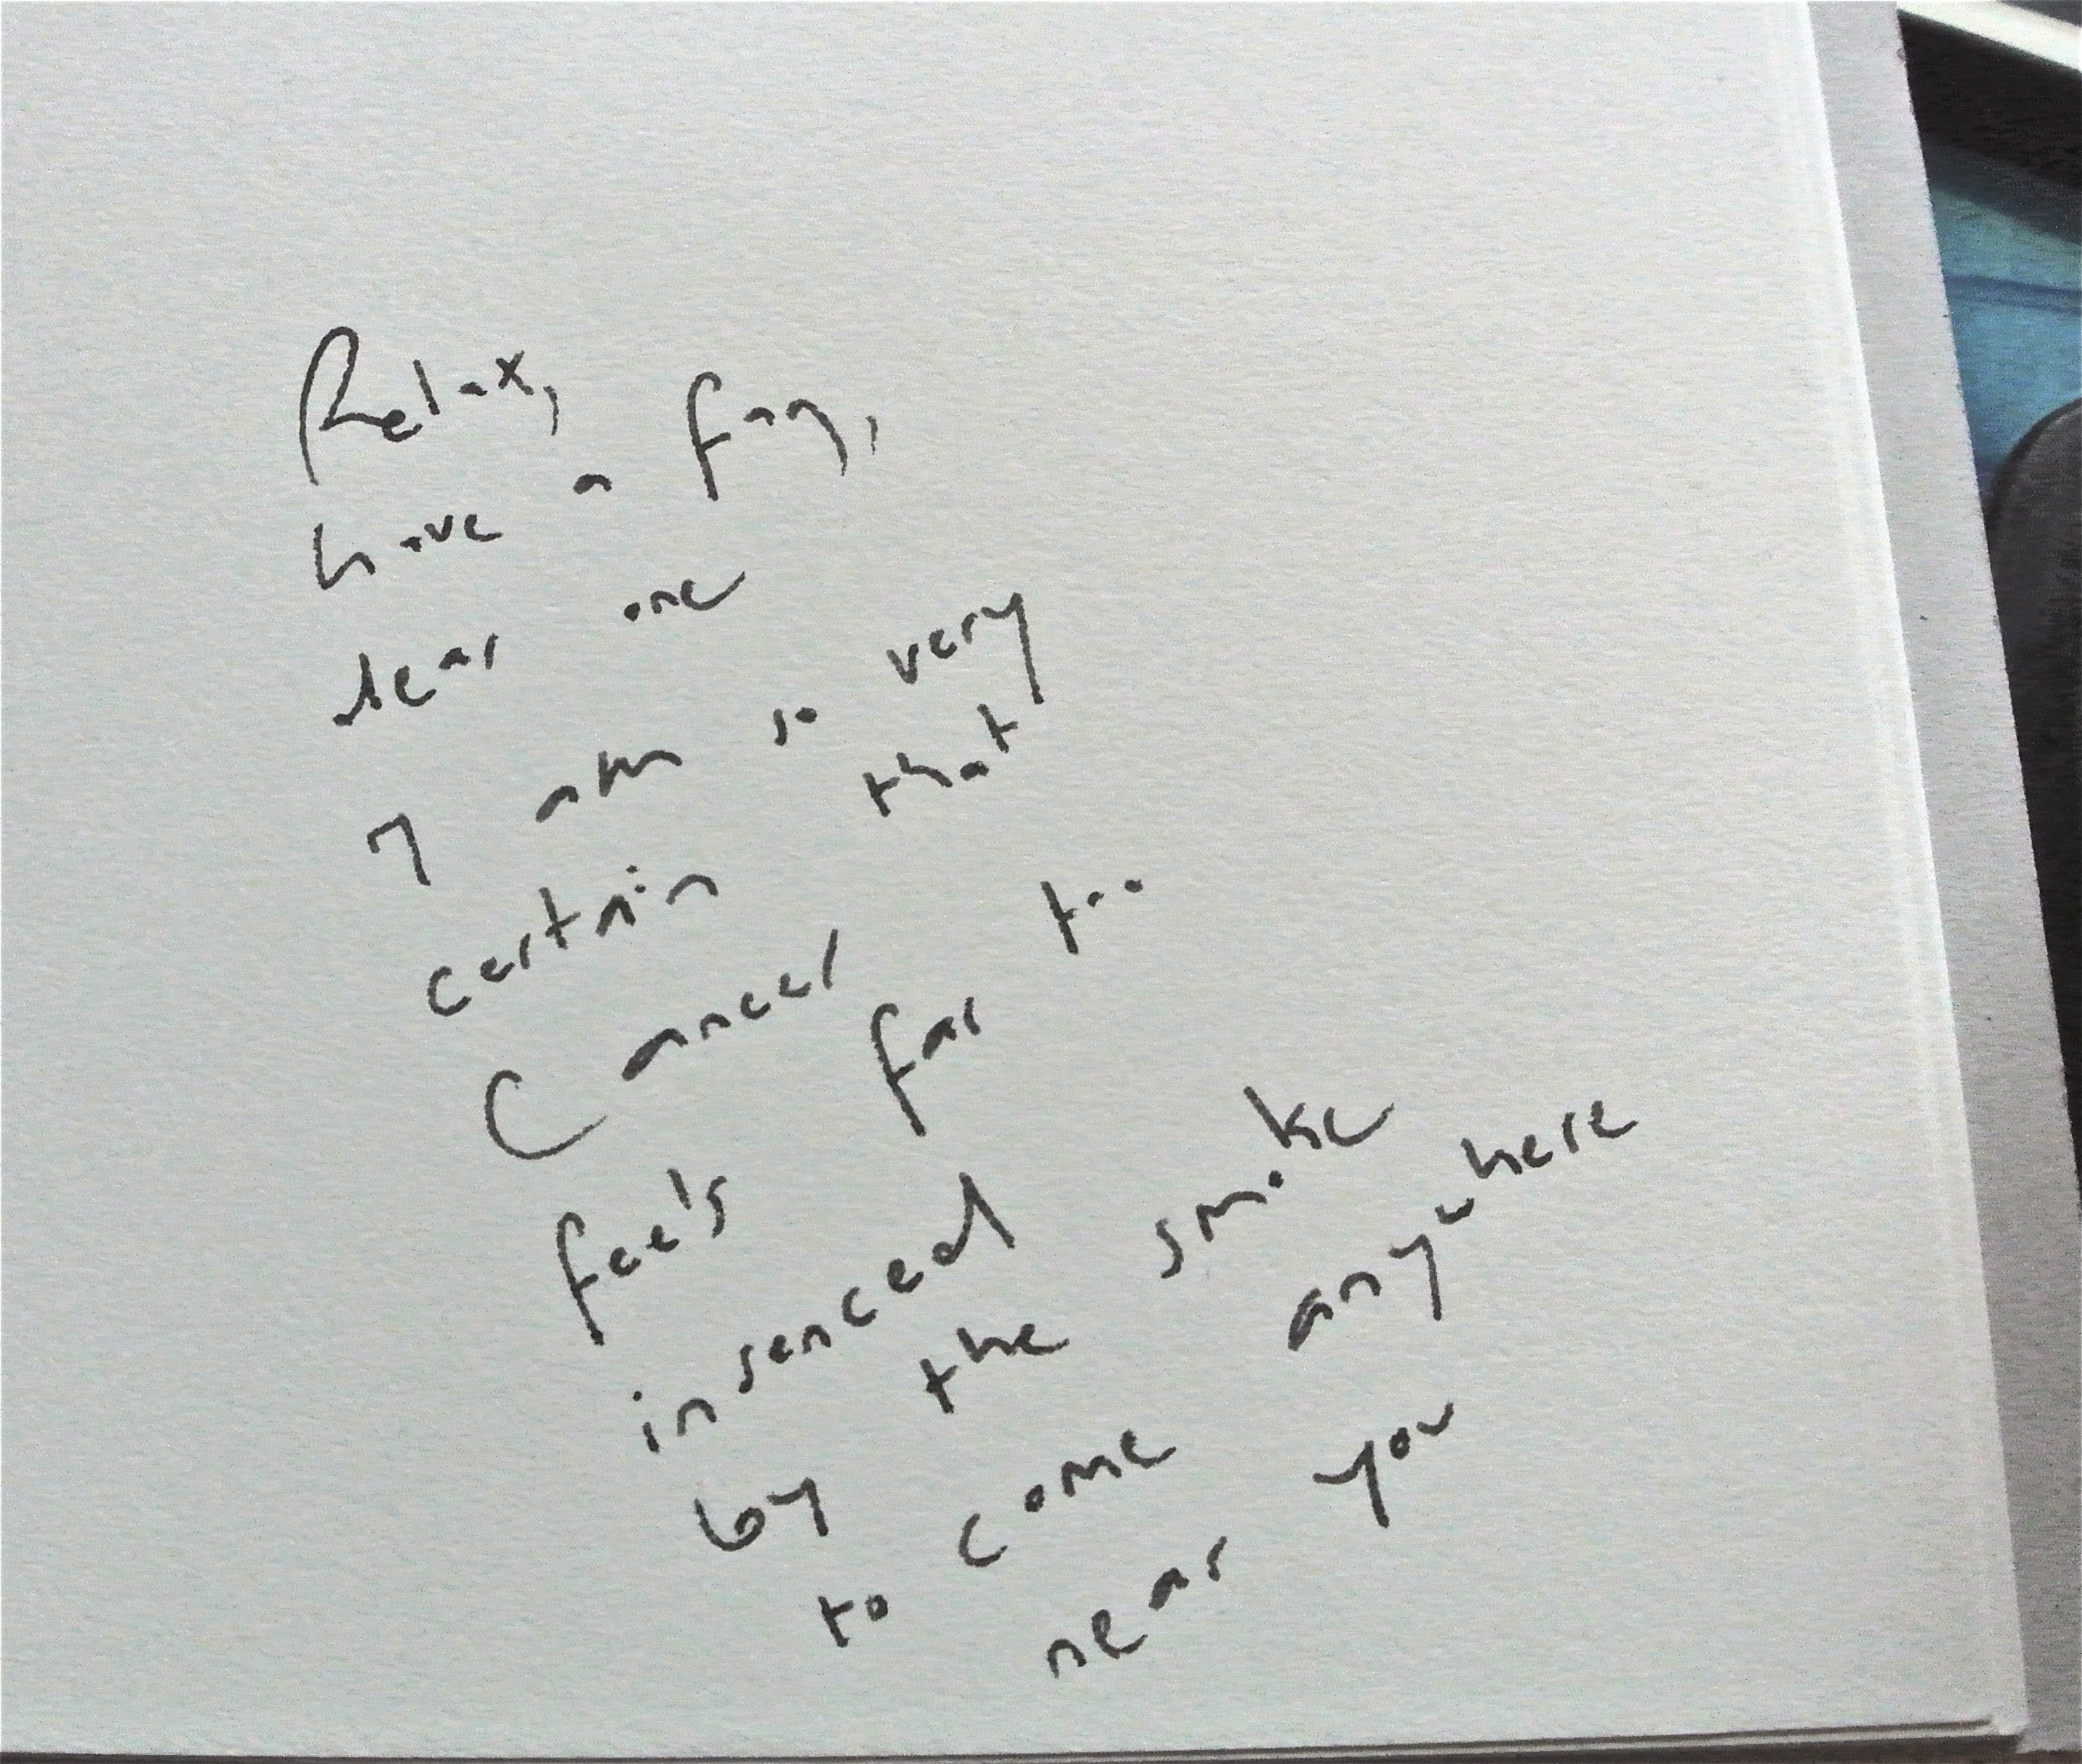 Relax,
have a fag,
dear one
I am so very
certain that
Cancer
feels far too
insenced
by the smoke
to come anywhere
near you